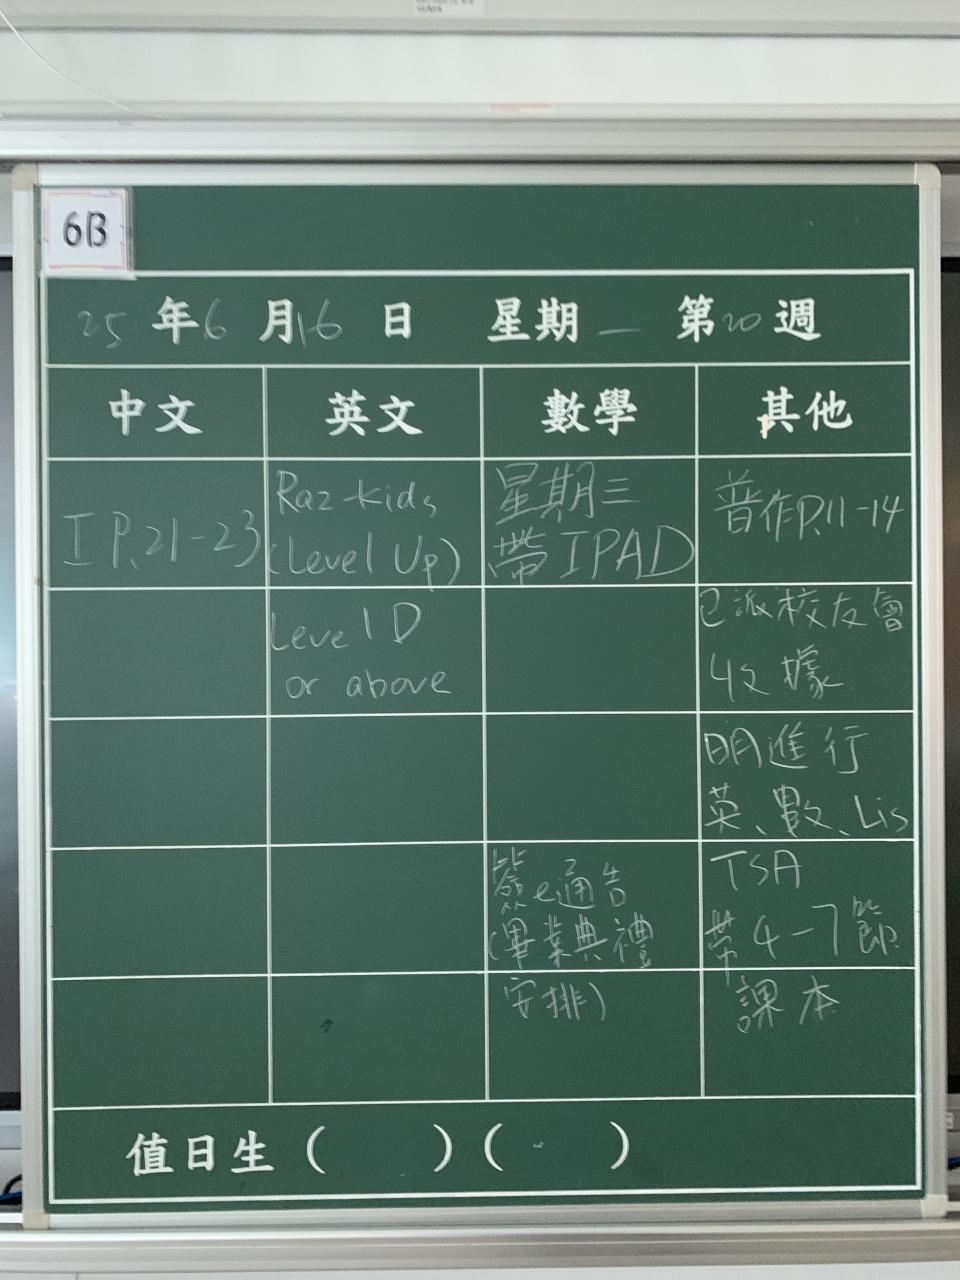 6B
25年6月16日 星期一 第20週
中文 英文 數學 其他
工P.21-23
Raz-kids
(Level Up)
星期三
帶IPAD
普作P.11-14
Level D
or above
已派校友會
收據
明進行
英、數、Lis
簽e通告
(畢業典禮
TSA
帶4-7節
安排)
課本
值日生( )( )